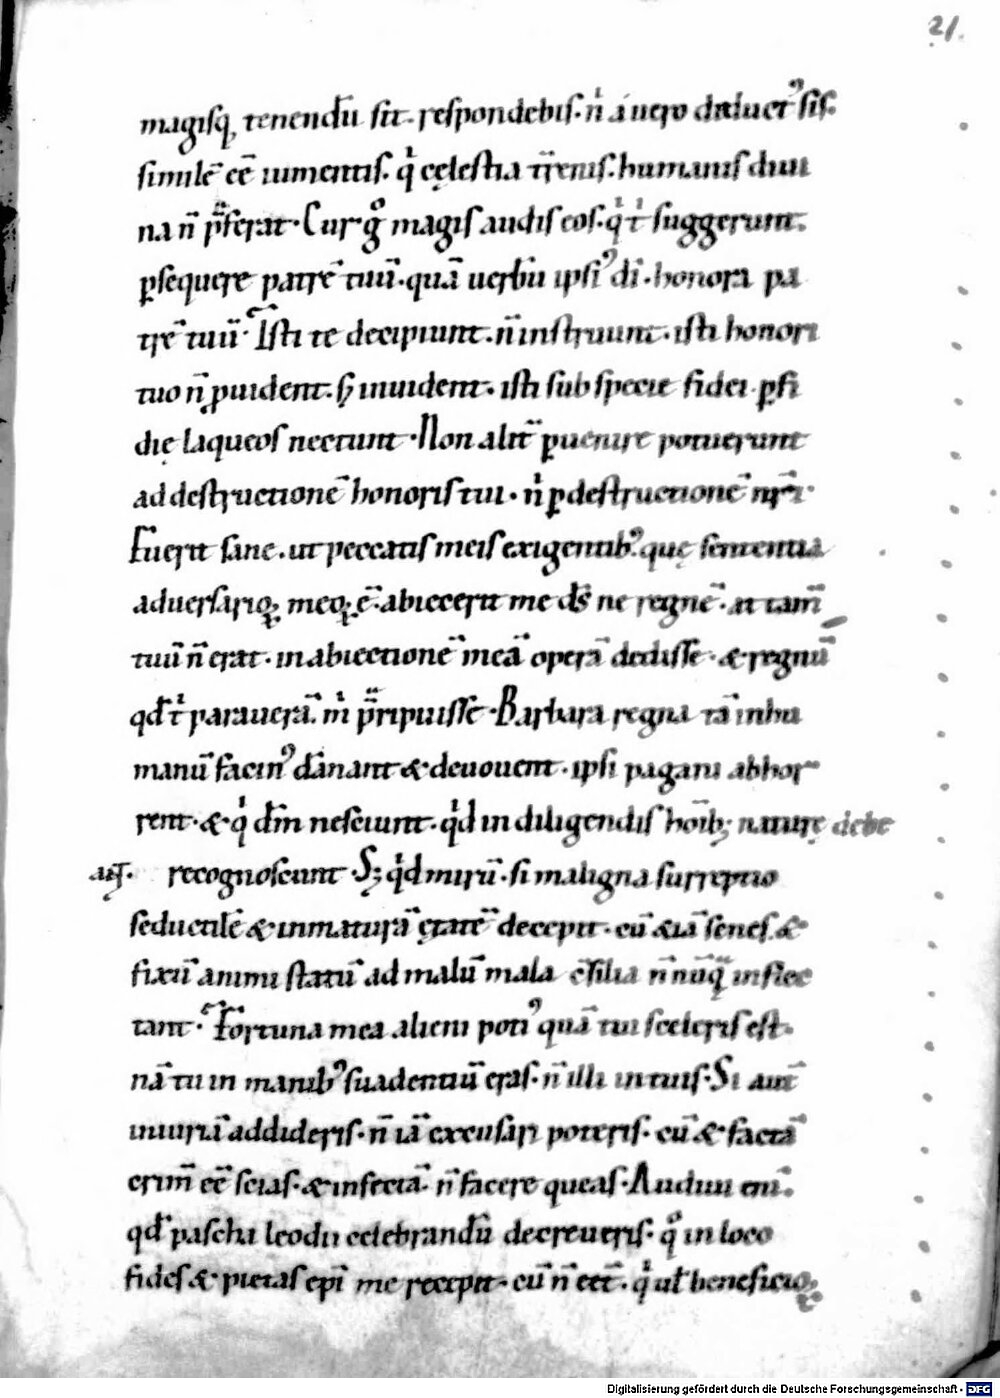 21.
magisq; tenendū sit. respondebis. n̄ á uero diducť sis.
similē eē iumentis. qͥ cęlestia tr̄enis. humanis diui
na n̄ p̄ferat. Cur gͦ magis audis eos. qͥ tͥ suggerunt.
ꝑsequere patrē tuū. quā uerbū ipsiꝰ dī. honora pa
trē tuū. Isti te decipiunt. n̄ instruunt. isti honori
tuo n̄ ꝓuident. sꝫ inuident. isti sub specie fidei ꝑfi
dię laqueos nectunt. Non alit̄ ꝑuenire potuerunt
ad destructionē honoris tui. nͥ ꝑ destructionē nr̄i.
Fuerit sane. ut peccatis meis exigentibꝰ. quę sententia
aduersarioꝝ meoꝝ ē. abiecerit me dꝰs ne regnē. at tam̄
tuū n̄ erat. in abiectionē meā operā dedisse. & regnū
qđ tͥ paraueram̄. mͥ p̄ripuisse. Barbara regna tā inhu
manū facinꝰ dānant & deuouent. ipsi pagani abhor
rent. & qͥ dm̄ nesciunt. qͥd in diligendis hoībꝫ naturę debe
ant. recognoscunt. Sꝫ qͥd mirū. si maligna surreptio
seductilē & inmaturā ętatē decepit. cū &iā senes. &
fixū animi statū ad malū mala c̄silia n̄ nūq̄ inflec
tant. Fortuna mea alieni potiꝰ quā tui sceleris est.
nā tu in manibꝰ suadentiū eras. n̄ illi in tuis. Si aut̄
iniuriā addideris. n̄ iā excusari poteris. cū & factā
crim̄ eē scias. & infectā n̄ facere queas. Audiui eni.
qđ pascha leodii celebrandū decreueris. qͦ in loco
fides & pietas epī me recepit. cū n̄ eēt. qͥ uł beneficioꝝ